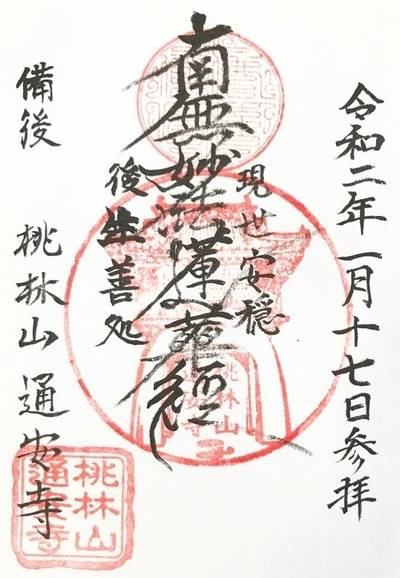 令和二年一月十七日参拝
現世安穏
南無妙法蓮華経
後生善処
備後 桃林山 通安寺
桃林山
通安寺
桃林山
通安寺